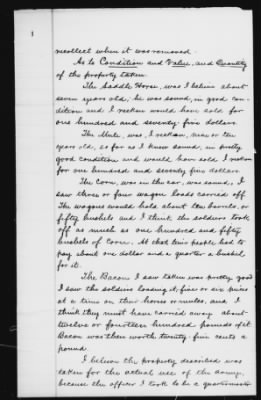 1
recollect when it was removed.
As to Condition and Value, and Quantity
of the property taken.
The Saddle Horse, was I believe about
seven years old, he was sound, in good con-
dition and I reckon would have sold for
one hundred and seventy five dollars.
The Mule, was, I reckon, nine or ten
years old, so far as I knew sound, in pretty
good condition and would have sold I reckon
for one hundred and seventy five dollars.
The Corn, was in the ear, was sound, I
saw three or four wagon loads carried off
The wagons would hold about ten barrels, or
fifty bushels and I think the soldiers took
off as much as one hundred and fifty
bushels of corn. At that time people had to
pay about one dollar and a quarter a bushel
for it.
The Bacon I saw taken was pretty good
I saw the soldiers loading it, five or six pieces
at a time on their horses or mules, and I
think they must have carried away about
twelve or fourteen hundred pounds of it
Bacon was then worth twenty five cents a
pound.
I believe the property described was
taken for the actual use of the army,
because the officer I took to be a quartermaster